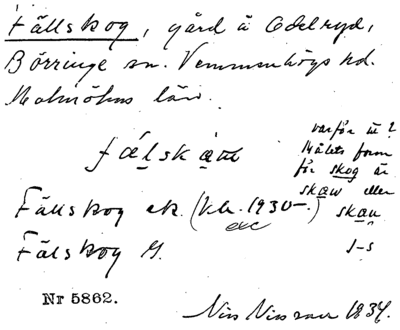 Fällskog, gård å Edelryd,
Börringe sn. Vemmenhögs hd.
Malmöhus län.
varför ä?
Målets form
för skog är
skaw eller
skau
fälskau
Fällskog ek. (kb. 1930–)
Fälskog G. J–s
Nr 5862.
Nils Nilsson 1834.